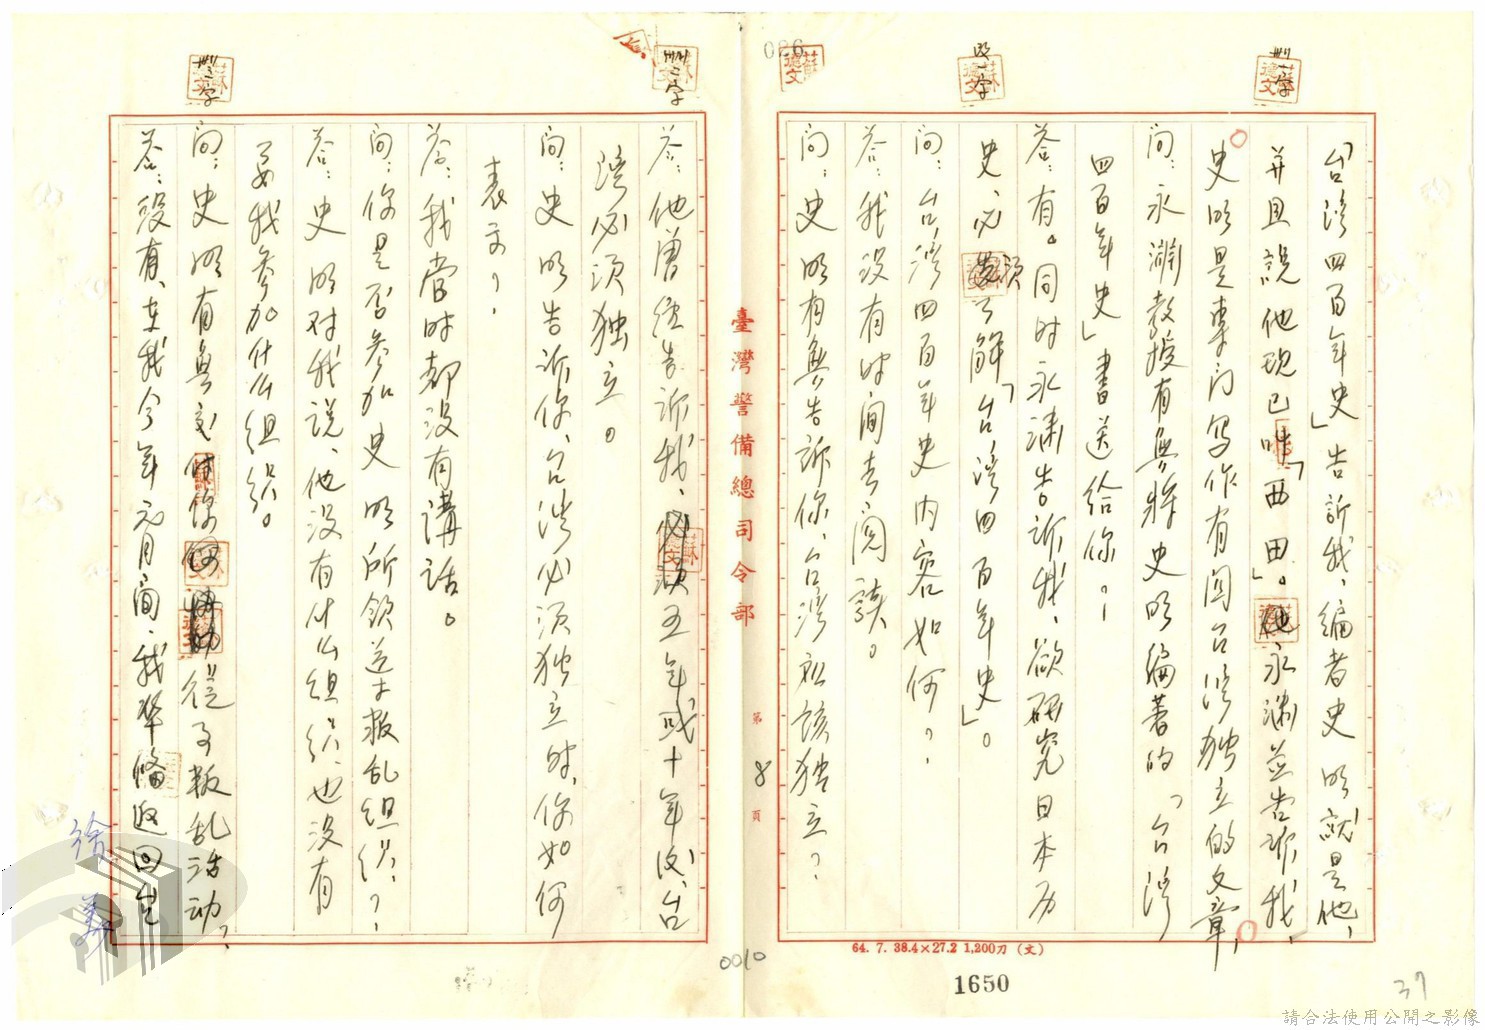 「台湾四百年史」告訴我、編者史明就是他、
并且説他現已「西田」。永渊並告訴我、
史明是專门写作有関台湾独立的文章，
问：永渊教授有無將史明編著的「台湾
四百年史」書送給你？
荅：有。同时永渊告訴我、欲研究日本历
史、必須了解「台湾四百年史」。
问：台湾四百年史内容如何？
荅：我没有时间去阅讀。
问：史明有無告訴你、台湾应該独立？
荅：他曾經告訴我、五年或十年後、台
湾必須独立。
问：史明告訴你、台湾必須独立时，你如何
表示？
荅：我當时都没有講話。
问：你是否参加史明所領導叛乱组织？
荅：史明对我説、他没有什么组织、也没有
要我参加什么组织。
问：史明有無交你從事叛乱活动？
荅：没有、在我今年元月间、我準備返回台
刪二字
刪二字
改一字
刪一字
026
臺灣警備總司令部
第8頁
64. 7. 38.4×27.2 1,200刀（文）
0010
1650
37
請合法使用公開之影像